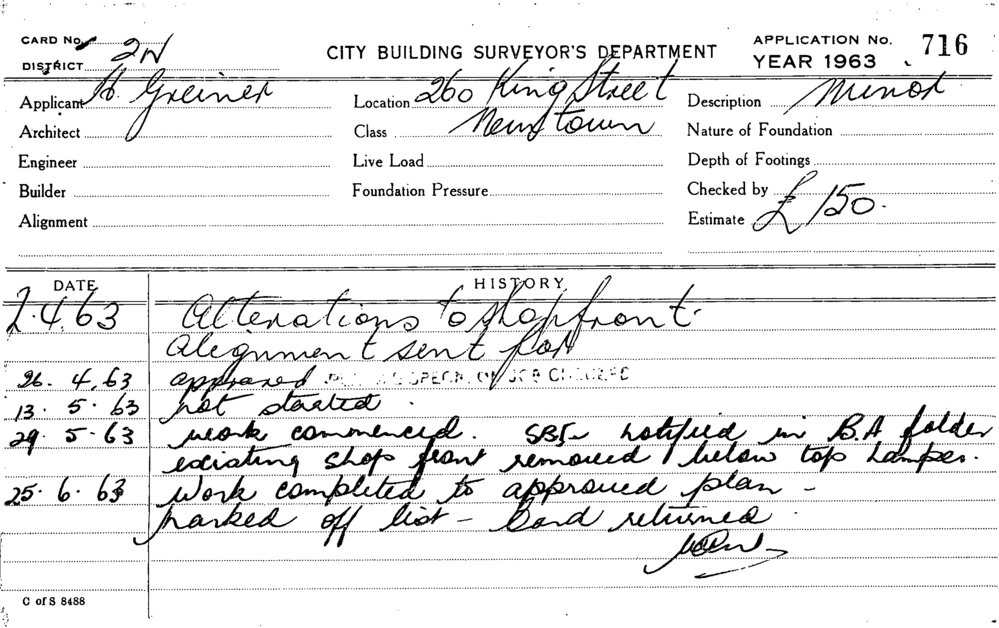 CARD No.
DISTRICT 2N
CITY BUILDING SURVEYOR'S DEPARTMENT
APPLICATION No. 716
YEAR 1963
Applicant H. Greiner
Location 260 King Street
Description Minor
Architect
Class Newtown
Nature of Foundation
Engineer
Live Load
Depth of Footings
Builder
Foundation Pressure
Checked by
Alignment
Estimate £150.
DATE HISTORY
2.4.63 Alterations to shopfront.
Alignment sent for
26. 4. 63 approved SPECN. JOB
13. 5. 63 not started.
29. 5. 63 work commenced. notified in B.A folder
existing shop front removed below top hamper.
25. 6. 63 Work completed to approved plan -
marked off list - Card returned.
C of S 8488